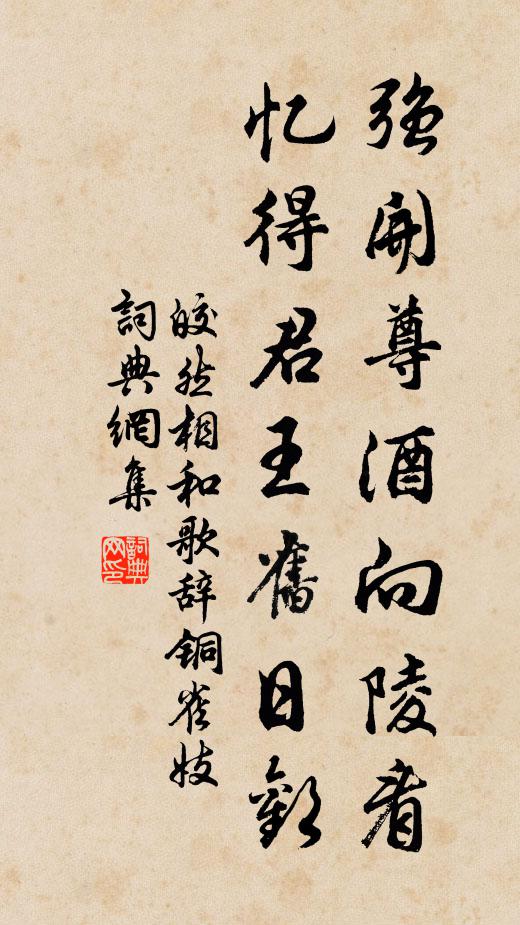 强開尊酒向陵看
忆得君王舊日歡
皎然相和歌辞銅雀妓
詞典網集
詞典网印